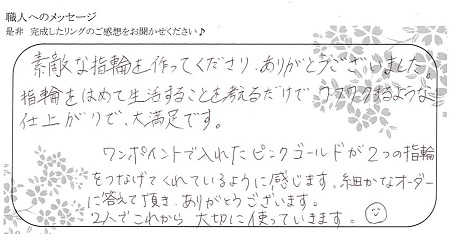 職人へのメッセージ
是非 完成したリングのご感想をお聞かせください♪
素敵な指輪を作ってくださり、ありがとうございました。
指輪をはめて生活することを考えるだけで、ワクワクするような
仕上がりで、大満足です。
ワンポイントで入れたピンクゴールドが2つの指輪
をつなげてくれているように感じます。細かなオーダー
に答えて頂き、ありがとうございます。
2人でこれから 大切に使っていきます。